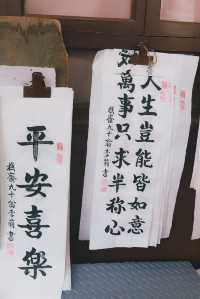 人生豈能皆如意
萬事只求半称心
九十翁李
書
平安喜樂
九十翁李
書